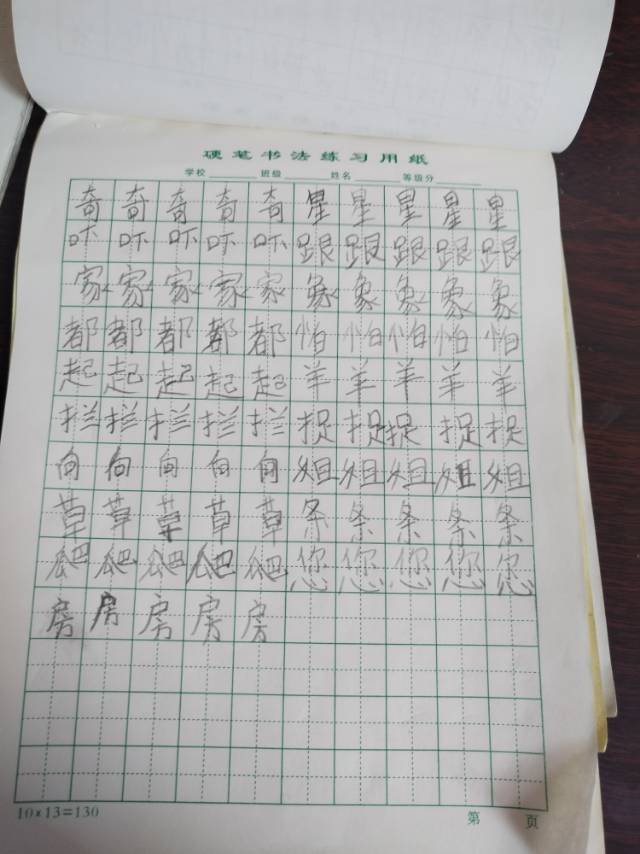 硬笔书法练习用纸
学校 班级 姓名 等级分
奇奇奇奇奇星星星星星
吓吓吓吓吓跟跟跟跟跟
家家家家家象象象象象
都都都都都怕怕怕怕怕
起起起起起羊羊羊羊羊
拦拦拦拦拦捉捉捉捉捉
向向向向向姐姐姐姐姐
草草草草草条条条条条
爬爬爬爬爬您您您您您
房房房房房
10×13=130
第 页